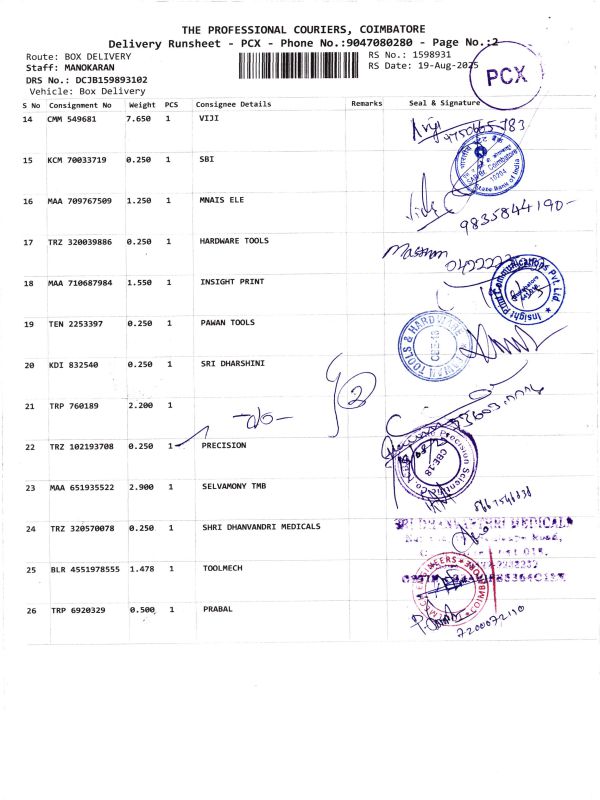 THE PROFESSIONAL COURIERS, COIMBATORE
Delivery Runsheet - PCX - Phone No.:9047080280 - Page No.:2
Route: BOX DELIVERY RS No.: 1598931
Staff: MANOKARAN RS Date: 19-Aug-2025
DRS No.: DCJB159893102
Vehicle: Box Delivery
PCX
S No Consignment No Weight PCS Consignee Details Remarks Seal & Signature
14 CMM 549681 7.650 1 VIJI
15 KCM 70033719 0.250 1 SBI
State Bank of India
16 MAA 709767509 1.250 1 MNAIS ELE
9835844190-
17 TRZ 320039886 0.250 1 HARDWARE TOOLS
18 MAA 710687984 1.550 1 INSIGHT PRINT
Insight Print Communications Pvt. Ltd.
19 TEN 2253397 0.250 1 PAWAN TOOLS
TOOLS & HARDWARE
20 KDI 832540 0.250 1 SRI DHARSHINI
21 TRP 760189 2.200 1
22 TRZ 102193708 0.250 1 PRECISION
Precision Scientific Co
CBE-18
23 MAA 651935522 2.900 1 SELVAMONY TMB
24 TRZ 320570078 0.250 1 SHRI DHANVANDRI MEDICALS
25 BLR 4551978555 1.478 1 TOOLMECH
26 TRP 6920329 0.500 1 PRABAL
7200072110